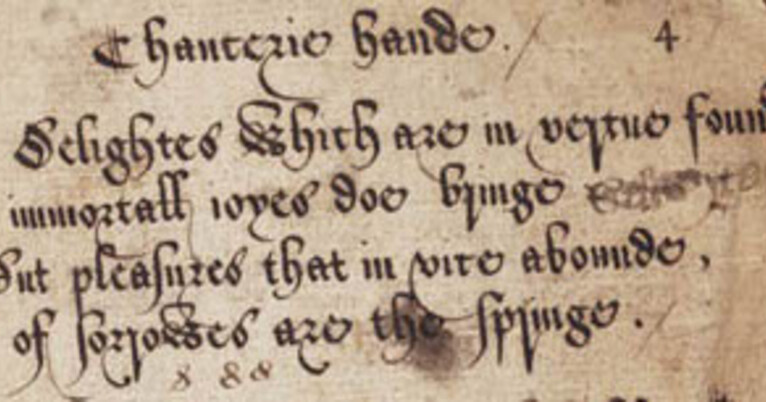 Chancerie hande. / 4
Delightes which are in vertue foun
immortall ioyes doe bringe
But pleasures that in vice abounde,
of sorrowes are the springe. /
8 8 8